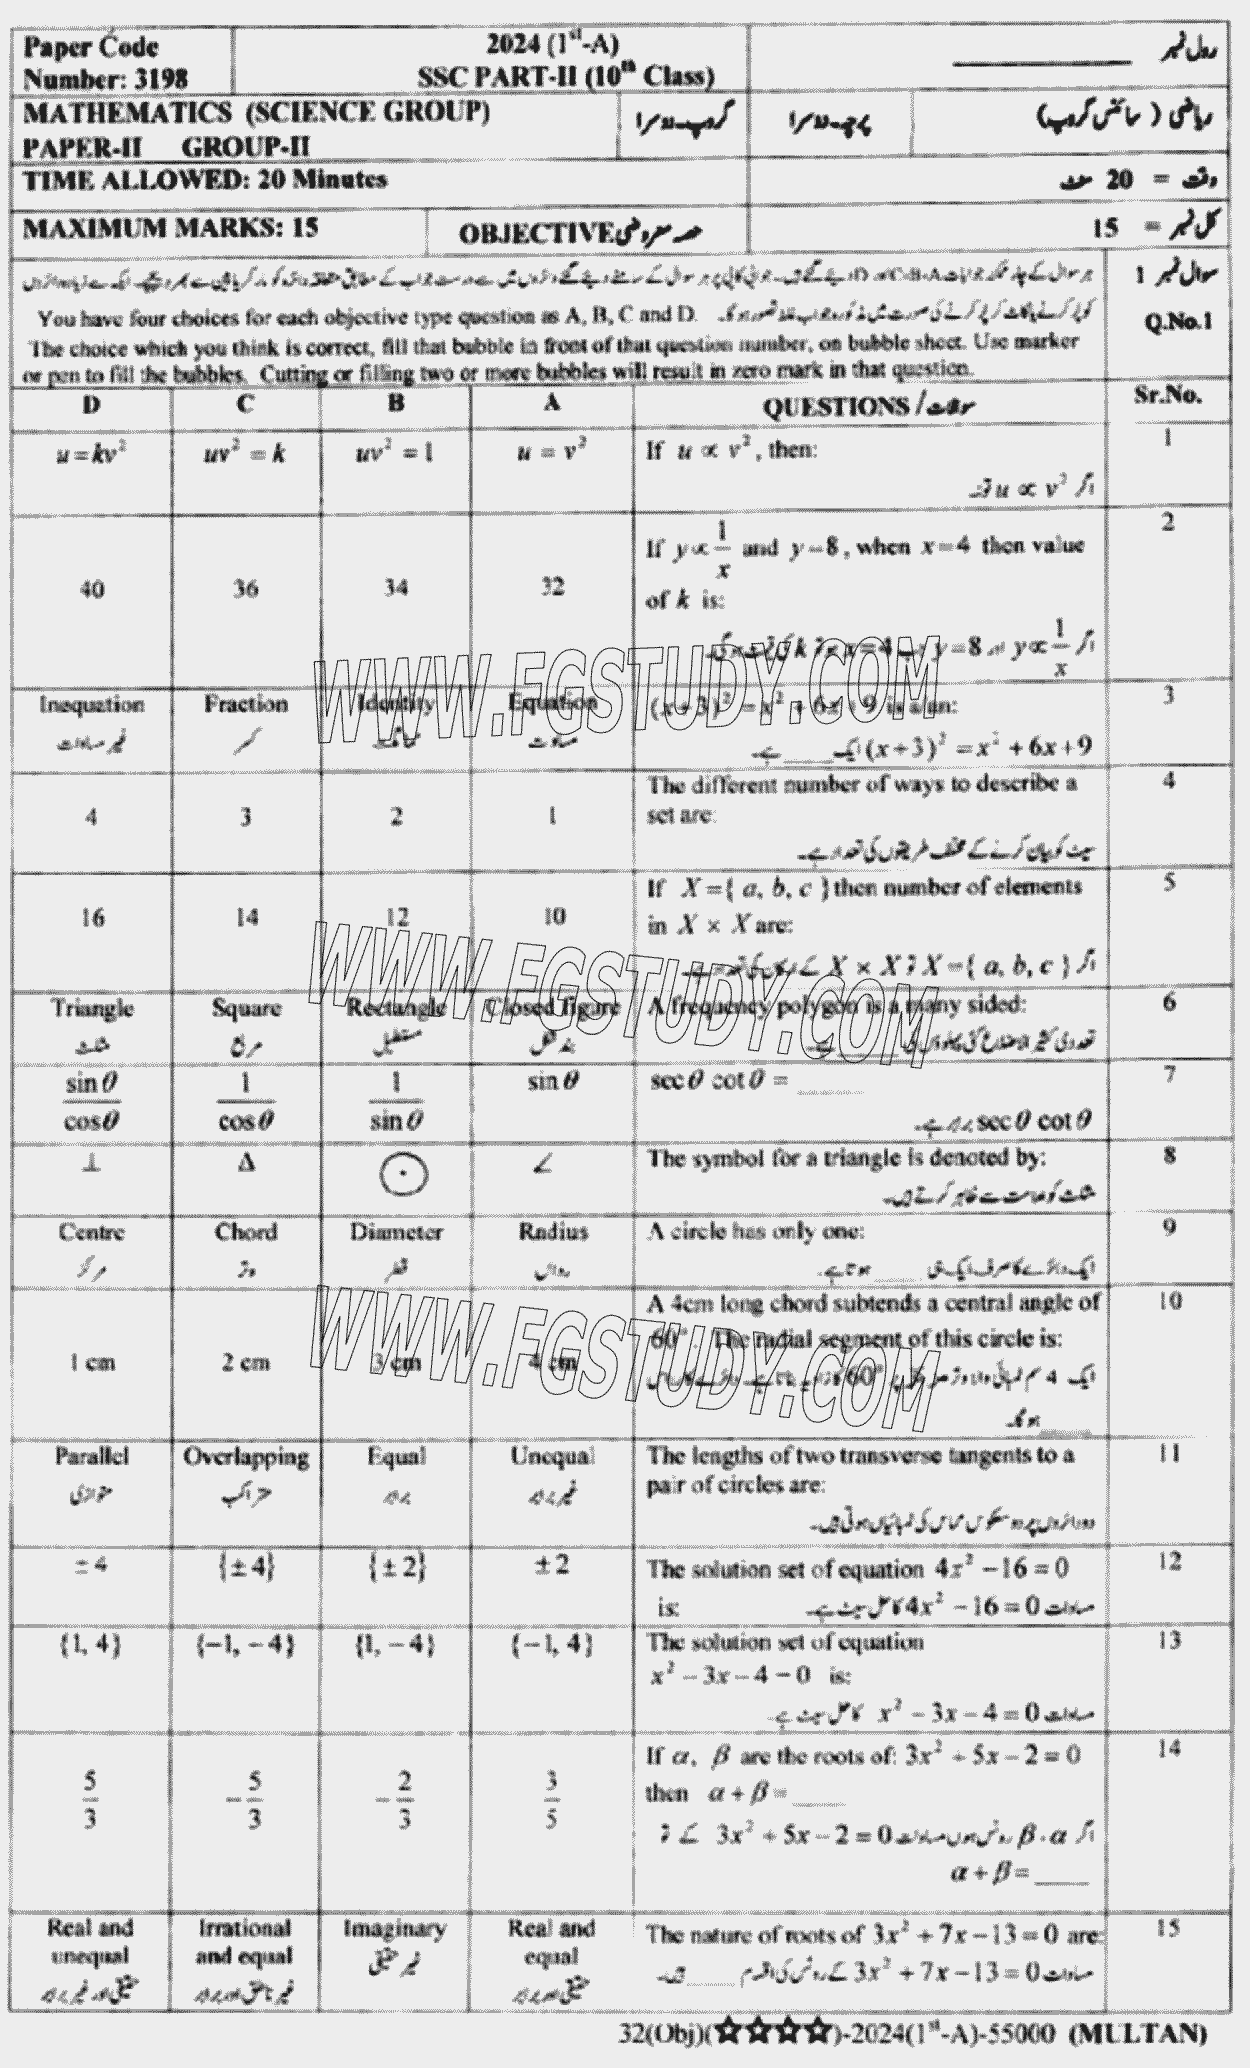 Paper Code
Number: 3198
2024 (1st-A)
SSC PART-II (10th Class)
رول نمبر
MATHEMATICS (SCIENCE GROUP)
PAPER-II GROUP-II
گروپ۔دوسرا
پرچہ۔دوسرا
ریاضی (سائنس گروپ)
TIME ALLOWED: 20 Minutes
وقت = 20 منٹ
MAXIMUM MARKS: 15
OBJECTIVE حصہ معروضی
کل نمبر = 15
سوال نمبر 1
Q.No.1
You have four choices for each objective type question as A, B, C and D.
The choice which you think is correct, fill that bubble in front of that question number, on bubble sheet. Use marker
or pen to fill the bubbles. Cutting or filling two or more bubbles will result in zero mark in that question.
D C B A QUESTIONS / سوالات Sr.No.
u = kv² uv² = k uv² = 1 u = v² If u ∝ v², then: 1
اگر u ∝ v² تو:
If y ∝ 1/x and y = 8, when x = 4 then value 2
40 36 34 32
of k is:
اگر y ∝ 1/x اور y = 8 جب x = 4 ہو تو k کی قیمت ہو گی۔
Inequation Fraction Identity Equation (x + 3)² = x² + 6x + 9 is a/an: 3
غیر مساوات کسر مماثلت مساوات (x + 3)² = x² + 6x + 9 ایک ____ ہے۔
The different number of ways to describe a 4
4 3 2 1 set are:
سیٹ کو بیان کرنے کے مختلف طریقوں کی تعداد ہے۔
If X = { a, b, c } then number of elements 5
16 14 12 10 in X × X are:
اگر X = { a, b, c } تو X × X کے ارکان کی تعداد ہے۔
Triangle Square Rectangle Closed figure A frequency polygon is a many sided: 6
مثلث مربع مستطیل بند شکل
sinθ/cosθ 1/cosθ 1/sinθ sinθ secθ cotθ = ____ 7
secθ cotθ برابر ہے۔
⊥ Δ ⊙ ∠ The symbol for a triangle is denoted by: 8
مثلث کو علامت سے ظاہر کرتے ہیں۔
Centre Chord Diameter Radius A circle has only one: 9
مرکز وتر قطر رداس ایک دائرے کا صرف ایک ہی ____ ہوتا ہے۔
A 4cm long chord subtends a central angle of 10
60°. The radial segment of this circle is:
1 cm 2 cm 3 cm 4 cm
ہو گا۔
Parallel Overlapping Equal Unequal The lengths of two transverse tangents to a 11
pair of circles are:
متوازی متراکب برابر غیر برابر
دو دائروں پر دو معکوس مماس کی لمبائیاں ہوتی ہیں۔
± 4 {± 4} {± 2} ± 2 The solution set of equation 4x² − 16 = 0 12
is: مساوات 4x² − 16 = 0 کا حل سیٹ ہے۔
{1, 4} {−1, − 4} {1, − 4} {−1, 4} The solution set of equation 13
x² − 3x − 4 = 0 is:
مساوات x² − 3x − 4 = 0 کا حل سیٹ ہے۔
If α, β are the roots of: 3x² + 5x − 2 = 0 14
5/3 −5/3 −2/3 3/5 then α + β = ____
اگر α، β روٹس ہوں مساوات 3x² + 5x − 2 = 0 کے تو
α + β = ____
Real and unequal Irrational and equal Imaginary Real and equal The nature of roots of 3x² + 7x − 13 = 0 are: 15
حقیقی اور غیر برابر غیر ناطق اور برابر غیر حقیقی حقیقی اور برابر مساوات 3x² + 7x − 13 = 0 کے روٹس کی اقسام ____ ہیں۔
32(Obj)(☆☆☆☆)-2024(1st-A)-55000 (MULTAN)
WWW.FGSTUDY.COM
WWW.FGSTUDY.COM
WWW.FGSTUDY.COM